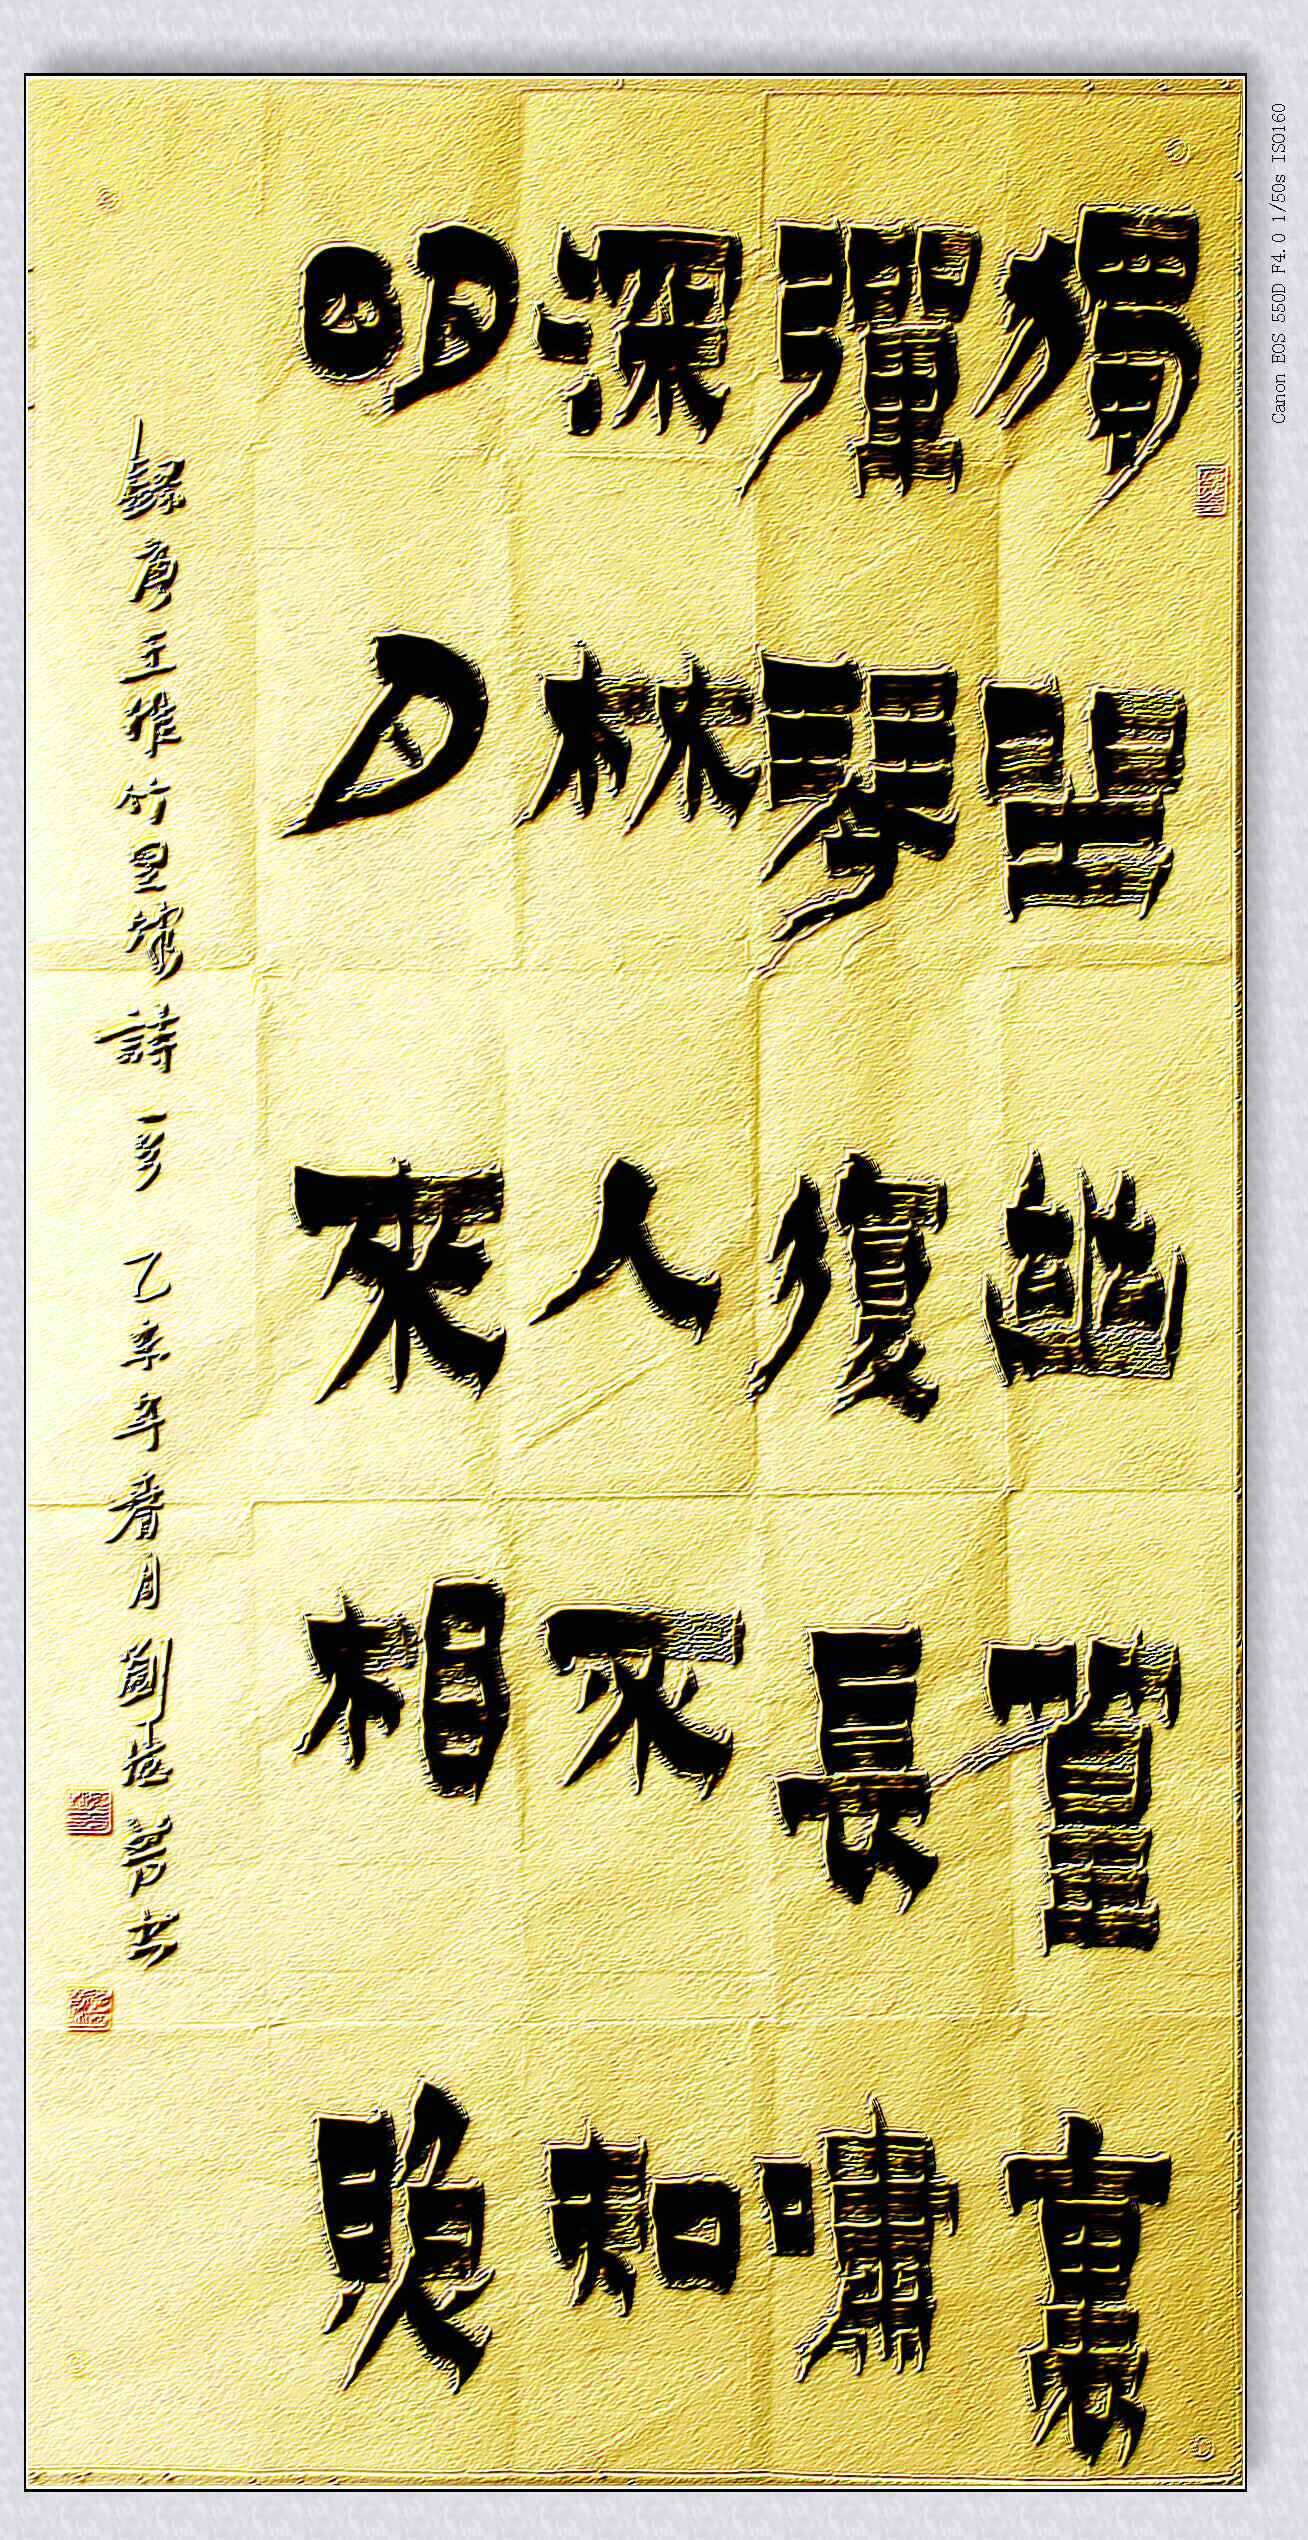 獨坐幽篁裏
彈琴復長嘯
深林人不知
明月來相照
錄唐王維竹里館詩一首 乙未年春月劉
Canon EOS 550D F4.0 1/50s ISO160